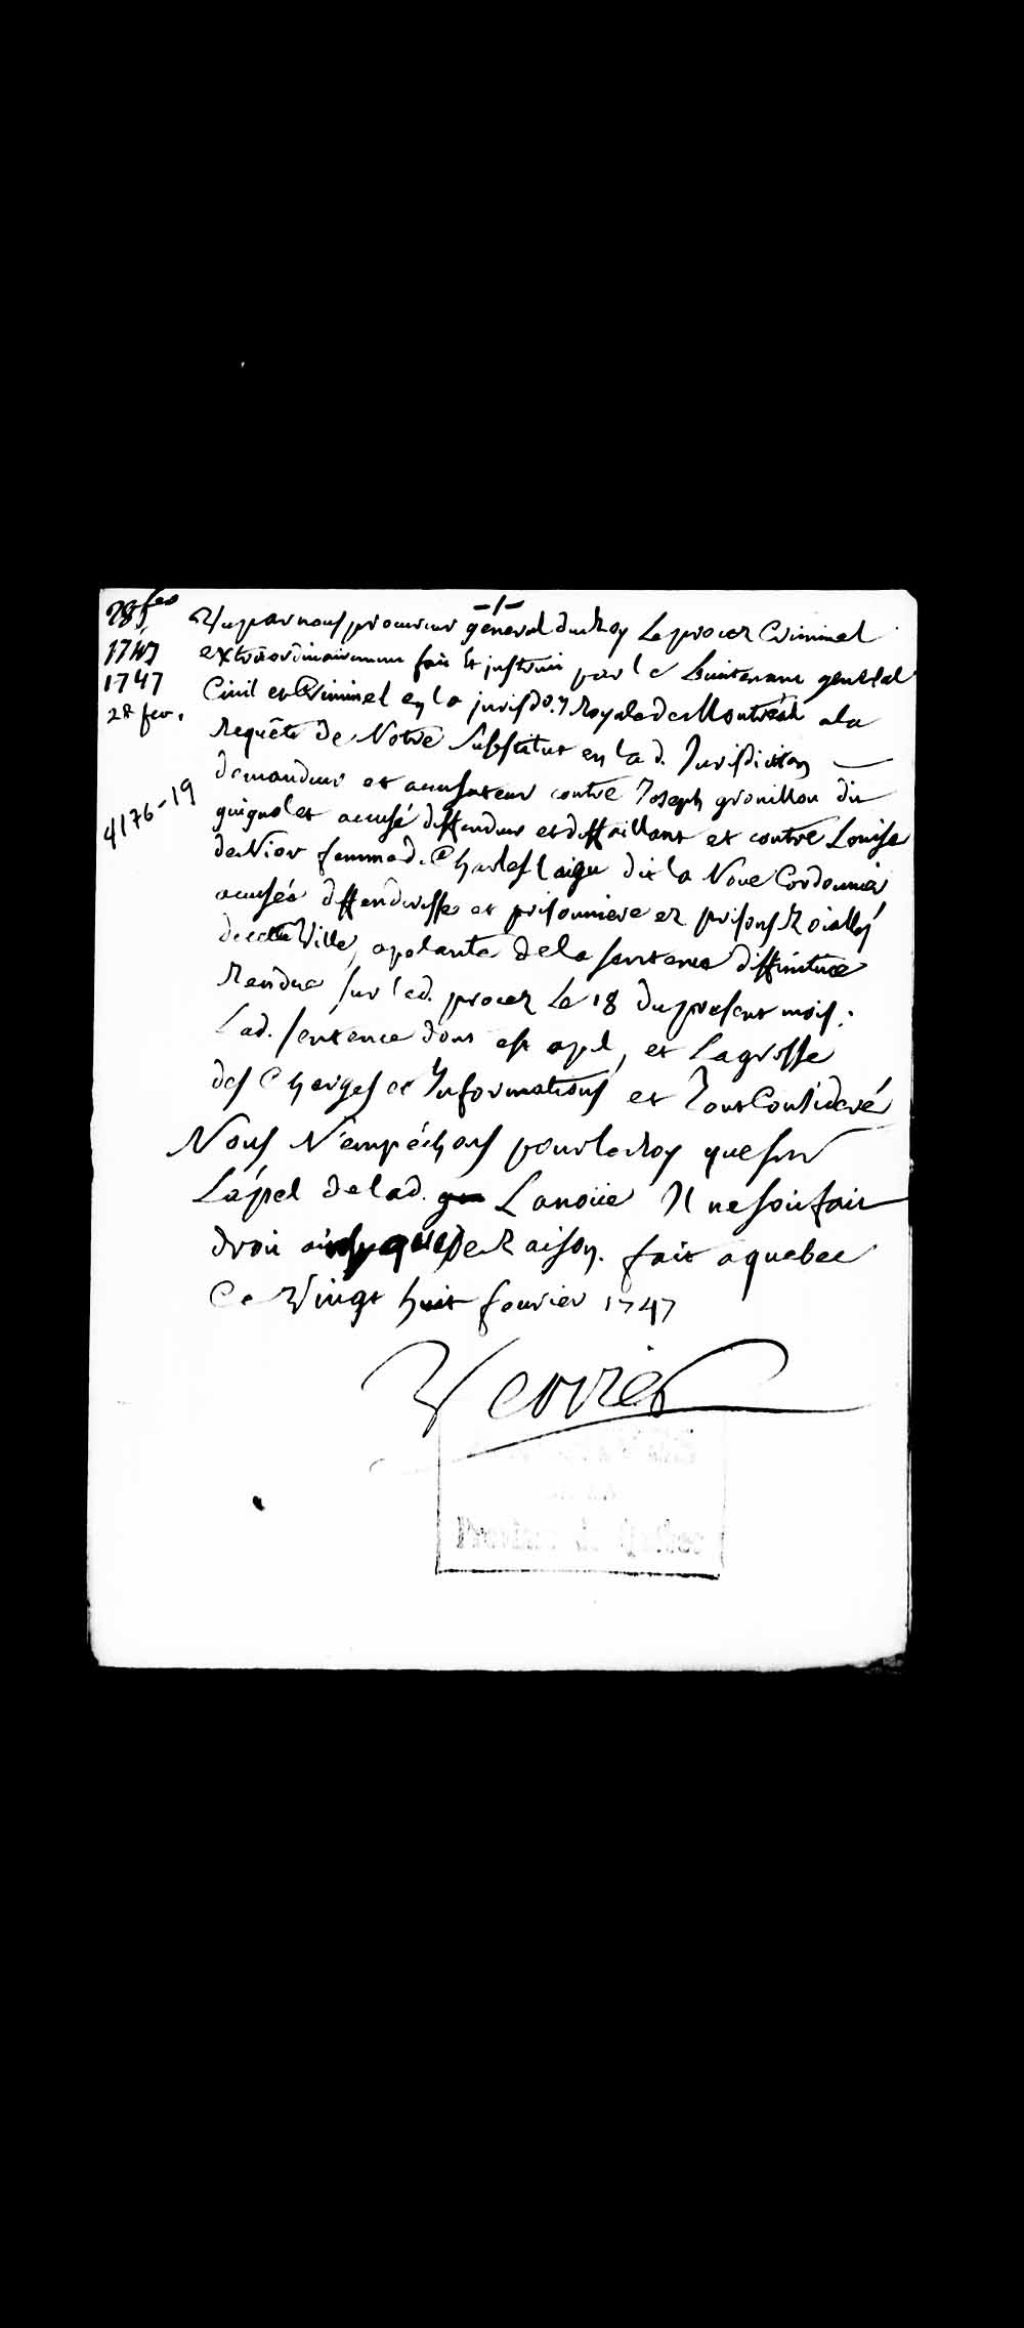 -1-
28 fev
1747
1747
28 fev.
4176-19
Vu par nous procureur general du Roy Le procez Criminel
extraordinairement fait et instruit par le Lieutenant general
Civil et Criminel en la jurisd.on Royale de Montreal a la
Requête de Notre Substitut en la d. Jurisdiction
demandeur et accusateur contre Joseph grouillon dit
guignolet accusé deffendeur et deffaillant et contre Louise
de Nior femme d. Charles laigu dit la Noue Cordonnier
accusée deffenderesse et prisonniere ez prisons Roialles
de cette Ville, apelante de la sentence diffinitive
Rendue sur led. procez Le 18 du present mois;
Lad. sentence dont est apel, et La grosse
des Charges et Informations et Tout Consideré
Nous N'empéchons pour le Roy que sur
L'apel de lad. Lanoüe Il ne soit fait
droit ainsy que de Raison. fait a quebec
Ce Vingt huit fevrier 1747
Verrier
Province de Quebec